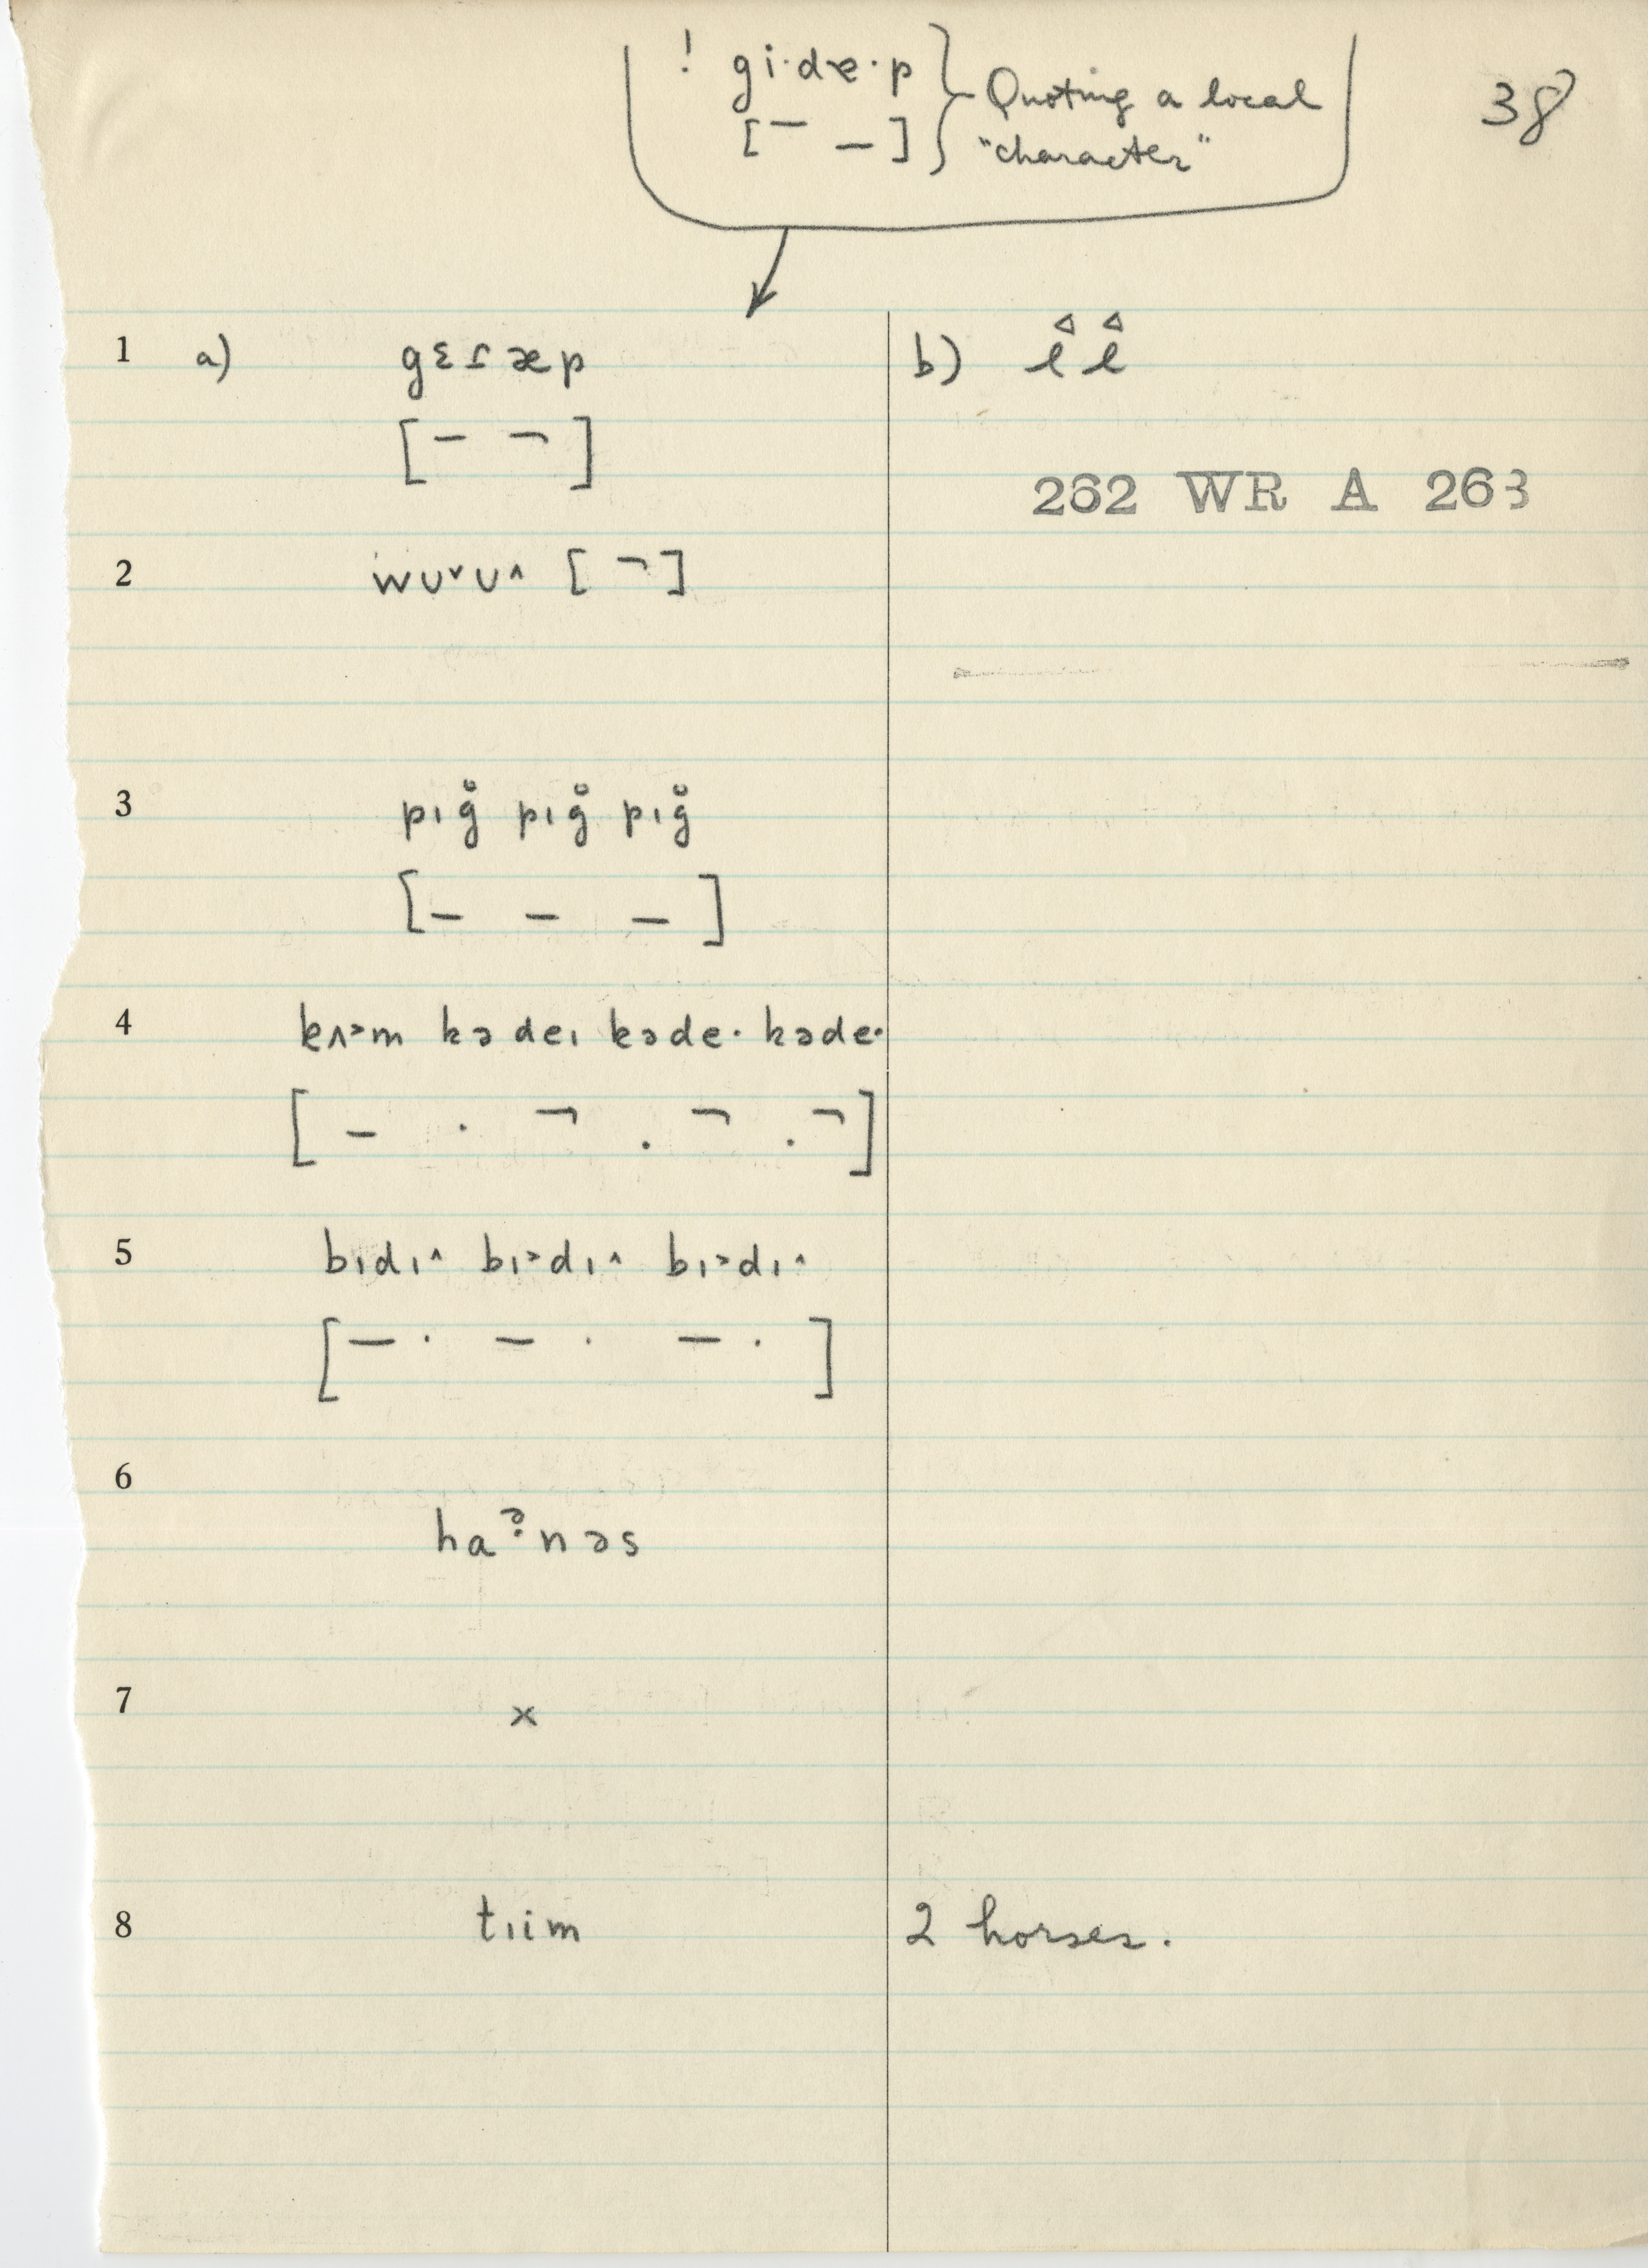 ! gi·dɐ·p } Quoting a local
[¯ _] "character"
38
1 a) gɛɾæp b) ê ê
[– ¬]
262 WR A 263
2 wʊ˅ʊ˄ [ ¬]
3 pıg̊ pıg̊ pıg̊
[– – –]
4 kʌ˃m kədeı kəde· kəde·
[– · ¬ . ¬ . ¬]
5 bıdı˄ bı˃dı˄ bı˃dı˄
[– · – · – ·]
6
haʔ̣nəs
7 ×
8 tıim 2 horses.